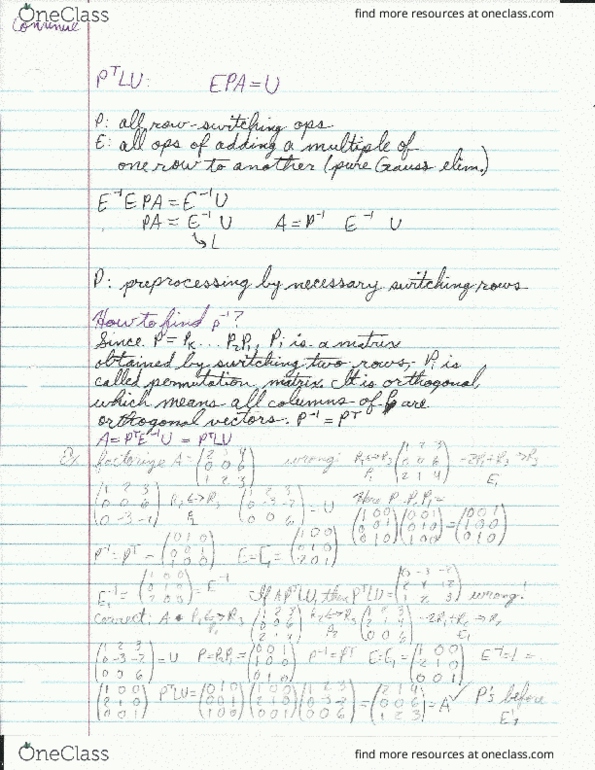 OneClass
find more resources at oneclass.com
Continue
PᵀLU: EPA=U
P: all row-switching ops
E: all ops of adding a multiple of
one row to another (pure Gauss elim.)
E⁻¹EPA = E⁻¹U
PA = E⁻¹U A = P⁻¹ E⁻¹ U
↳L
P: preprocessing by necessary switching rows
How to find P⁻¹?
Since P = Pₖ ... P₂P₁, Pᵢ is a matrix
obtained by switching two rows, Pᵢ is
called permutation matrix. It is orthogonal,
which means all columns of P are
orthogonal vectors. P⁻¹ = Pᵀ
A = PᵀE⁻¹U = PᵀLU
Ex factorize A = (2 3 4 / 0 0 6 / 1 2 3) wrong: R₁↔R₃ P₁ (1 2 3 / 0 0 6 / 2 1 4) -2R₁+R₃→R₃ E₁
(1 2 3 / 0 0 6 / 0 -3 -2) R₂↔R₃ (1 2 3 / 0 -3 -2 / 0 0 6) = U Here P=P₂P₁=
(1 0 0 / 0 0 1 / 0 1 0) (0 0 1 / 0 1 0 / 1 0 0) = (0 0 1 / 1 0 0 / 0 1 0)
P⁻¹ = Pᵀ = (0 1 0 / 0 0 1 / 1 0 0) E=E₁= (1 0 0 / 0 1 0 / -2 0 1)
E₁⁻¹ = (1 0 0 / 0 1 0 / 2 0 0) = E⁻¹ If A=PᵀLU, then PᵀLU = wrong!
Correct: A R₁↔R₃ P₁ (1 2 3 / 0 0 6 / 2 1 4) R₂↔R₃ P₂ (1 2 3 / 2 1 4 / 0 0 6) -2R₁+R₂→R₂ E₁
(1 2 3 / 0 -3 -2 / 0 0 6) = U P=P₂P₁= (0 0 1 / 1 0 0 / 0 1 0) P⁻¹=Pᵀ E=E₁= (1 0 0 / -2 1 0 / 0 0 1) E⁻¹=L=
(1 0 0 / 2 1 0 / 0 0 1) PᵀLU = (0 1 0 / 0 0 1 / 1 0 0) (1 0 0 / 2 1 0 / 0 0 1) (1 2 3 / 0 -3 -2 / 0 0 6) = (2 1 4 / 0 0 6 / 1 2 3) = A ✓ P's before
E's
OneClass
find more resources at oneclass.com